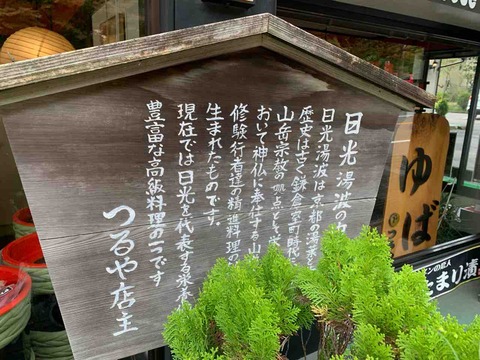 日光湯波の
日光湯波は京都の湯葉と
歴史は古く鎌倉室町時代
山岳宗教の拠点として栄
おいて神仏に奉仕する山
修験行者達の精進料理の
生まれたものです。
現在では日光を代表する栄養
豊富な高級料理の一つです
つるや店主
ゆば
たまり漬